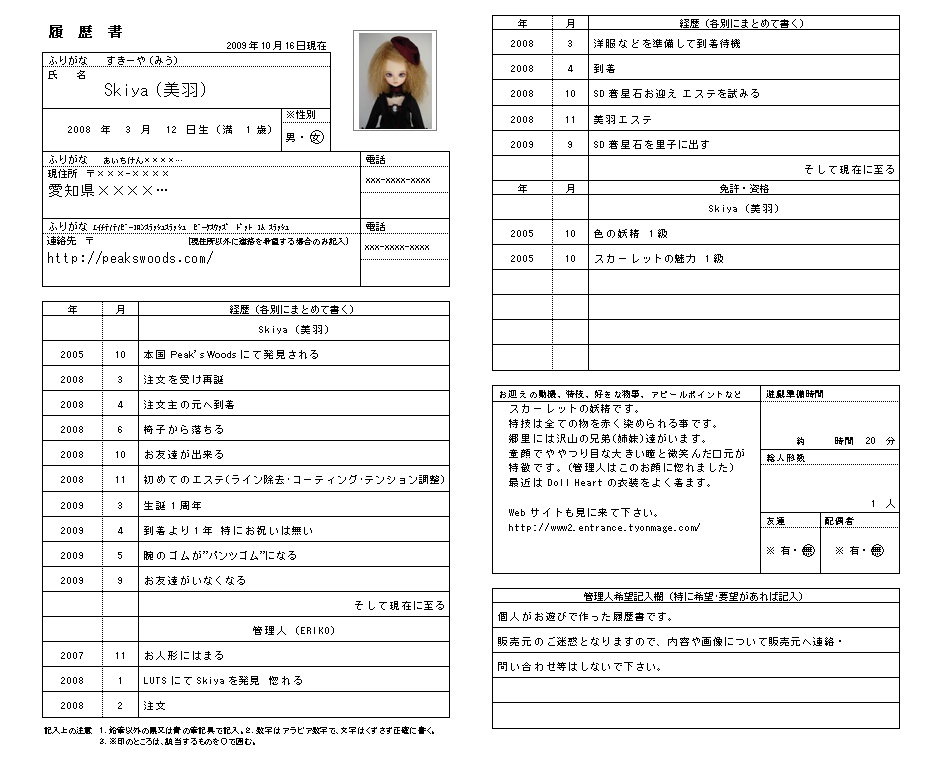 履歴書
2009年10月16日現在
ふりがな すきーや(みう)
氏 名
Skiya(美羽)
※性別
2008 年 3 月 12 日生(満 1 歳)
男・女
ふりがな あいちけん××××…
電話
現住所 〒×××-××××
愛知県××××…
xxx-xxxx-xxxx
電話
連絡先 〒
[現住所以外に連絡を希望する場合のみ記入]
http://peakswoods.com/
xxx-xxxx-xxxx
年 月 経歴(各別にまとめて書く)
Skiya(美羽)
2005 10 本国 Peak's Woods にて発見される
2008 3 注文を受け再誕
2008 4 注文主の元へ到着
2008 6 椅子から落ちる
2008 10 お友達が出来る
2008 11 初めてのエステ(ライン除去・コーティング・テンション調整)
2009 3 生誕1周年
2009 4 到着より1年 特にお祝いは無い
2009 5 腕のゴムが”パンツゴム”になる
2009 9 お友達がいなくなる
そして現在に至る
管理人(ERIKO)
2007 11 お人形にはまる
2008 1 LUTS にて Skiya を発見 惚れる
2008 2 注文
記入上の注意 1.鉛筆以外の黒又は青の筆記具で記入。2.数字はアラビア数字で、文字はくずさず正確に書く。
3.※印のところは、該当するものを○で囲む。
年 月 経歴(各別にまとめて書く)
2008 3 洋服などを準備して到着待機
2008 4 到着
2008 10 SD蒼星石お迎え エステを試みる
2008 11 美羽エステ
2009 9 SD蒼星石を里子に出す
そして現在に至る
年 月 免許・資格
Skiya(美羽)
2005 10 色の妖精 1級
2005 10 スカーレットの魅力 1級
お迎えの動機、特技、好きな物事、アピールポイントなど
スカーレットの妖精です。
特技は全ての物を赤く染められる事です。
郷里には沢山の兄弟(姉妹)達がいます。
童顔でややつり目な大きい瞳と微笑んだ口元が
特徴です。(管理人はこのお顔に惚れました)
最近は Doll Heart の衣装をよく着ます。
Web サイトも見に来て下さい。
http://www2.entrance.tyonmage.com/
遊戯準備時間
約 時間 20 分
総人形数
1 人
友達 配偶者
※ 有・無 ※ 有・無
管理人希望記入欄(特に希望・要望があれば記入)
個人がお遊びで作った履歴書です。
販売元のご迷惑となりますので、内容や画像について販売元へ連絡・
問い合わせ等はしないで下さい。